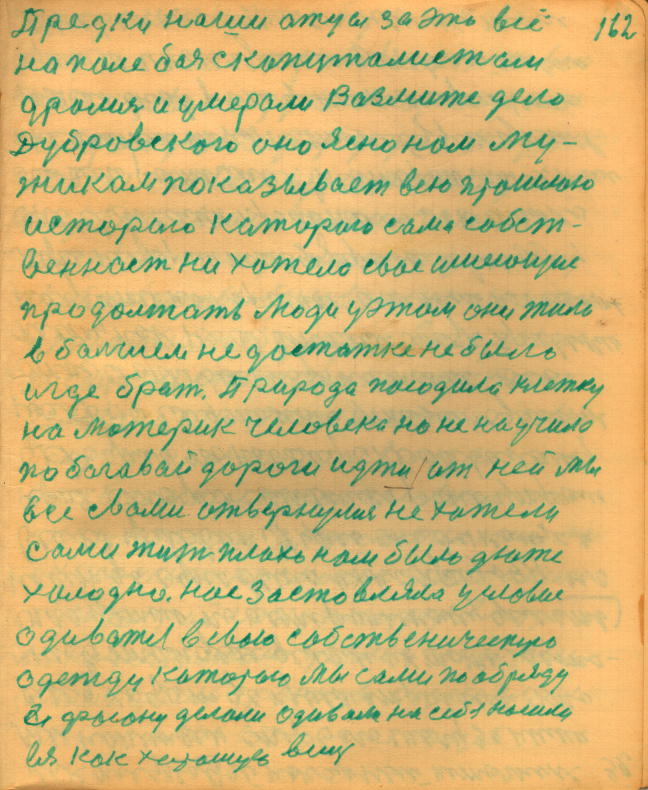 Предки наши отцы за это всё 162
на поле боя с копиталистом
дролис и умерали Возмите дело
Дубровского оно ясно ном му-
жикам показывает всю прошлою
историю каторого сама собст-
венност ни хотело свое имеющие
продолжать Люди уэтом они жили
в балшем не достатке не было
игде брат. Природа породила клетку
на материк человека но не научило
по богавай дороги идти / от ней мы
все свами отвернулис не хотели
сами жит плохо ном было даже
холодно. нас застовляла условие
одиватся в свою собственическую
одежду каторою мы сами по обряду
фасону делали одивали на себя носили
ея как хорошую вещ